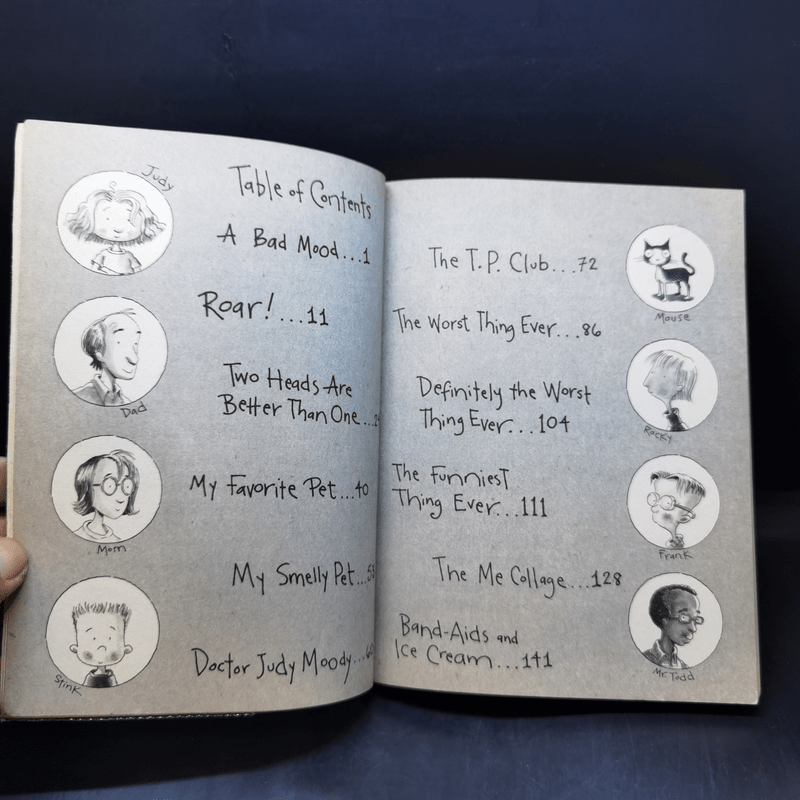 Judy
Table of Contents
A Bad Mood...1
Roar!...11
Two Heads Are
Better Than One...
Dad
My Favorite Pet...40
Mom
My Smelly Pet...
Doctor Judy Moody...
Stink
The T.P. Club...72
Mouse
The Worst Thing Ever...86
Definitely the Worst
Thing Ever...104
Rocky
The Funniest
Thing Ever...111
Frank
The Me Collage...128
Band-Aids and
Ice Cream...141
Mr. Todd